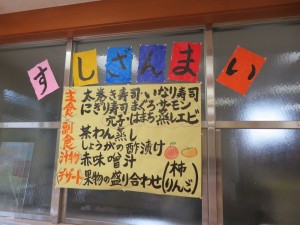 すしざんまい
主食 太巻き寿司・いなり寿司
にぎり寿司 まぐろ サーモン
穴子 はまち 蒸しエビ
副食 茶わん蒸し
しょうがの酢漬け
汁物 赤味噌汁
デザート 果物の盛り合わせ(柿 りんご)